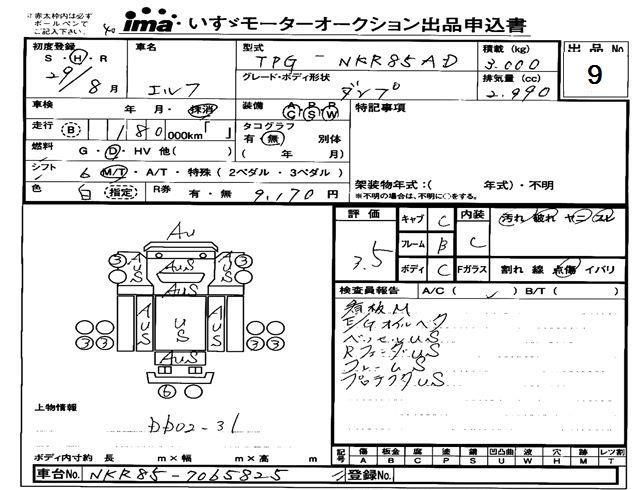 ※赤太枠内は必ず
ボールペンで
ご記入下さい。
ima いすゞモーターオークション出品申込書
初度登録 S・H・R 29年 8月
車名 エルフ
型式 TPG-NKR85AD
積載(kg) 3.000
出品No. 9
グレード・ボディ形状 ダンプ
排気量(cc) 2.990
車検 年 月・抹消
装備 A P R C S W
特記事項
走行 B 180 000km「 」
タコグラフ 有・無 別体 ( 年 月)
燃料 G・D・HV 他( )
シフト 6 M/T・A/T・特殊(2ペダル・3ペダル)
架装物年式:( 年式)・不明
※不明の場合は、不明に○をする。
色 白 指定 R券 有・無 9,170円
評価 3.5
キャブ C 内装 C 汚れ 破れ ヤニ スレ
フレーム B
ボディ C Fガラス 割れ 線 点傷 イバリ
検査員報告 A/C( ✓ ) B/T( )
看板M
E/Gオイルヘタ
ベッセルUS
RフェンダUS
フレームS
プロテクタUS
AU
3 AUS AUS AUS 3
AUS US AUS
3 3 3 3
AUS
6
上物情報
DD02-31
ボディ内寸約 長 m×幅 m×高 m
記号 傷 A 板金 B 腐 C 塗 P 錆 S 凹凸曲 U 波 W 穴 H 跡 M レツ割 T
車台No. NKR85-7065825
登録No.